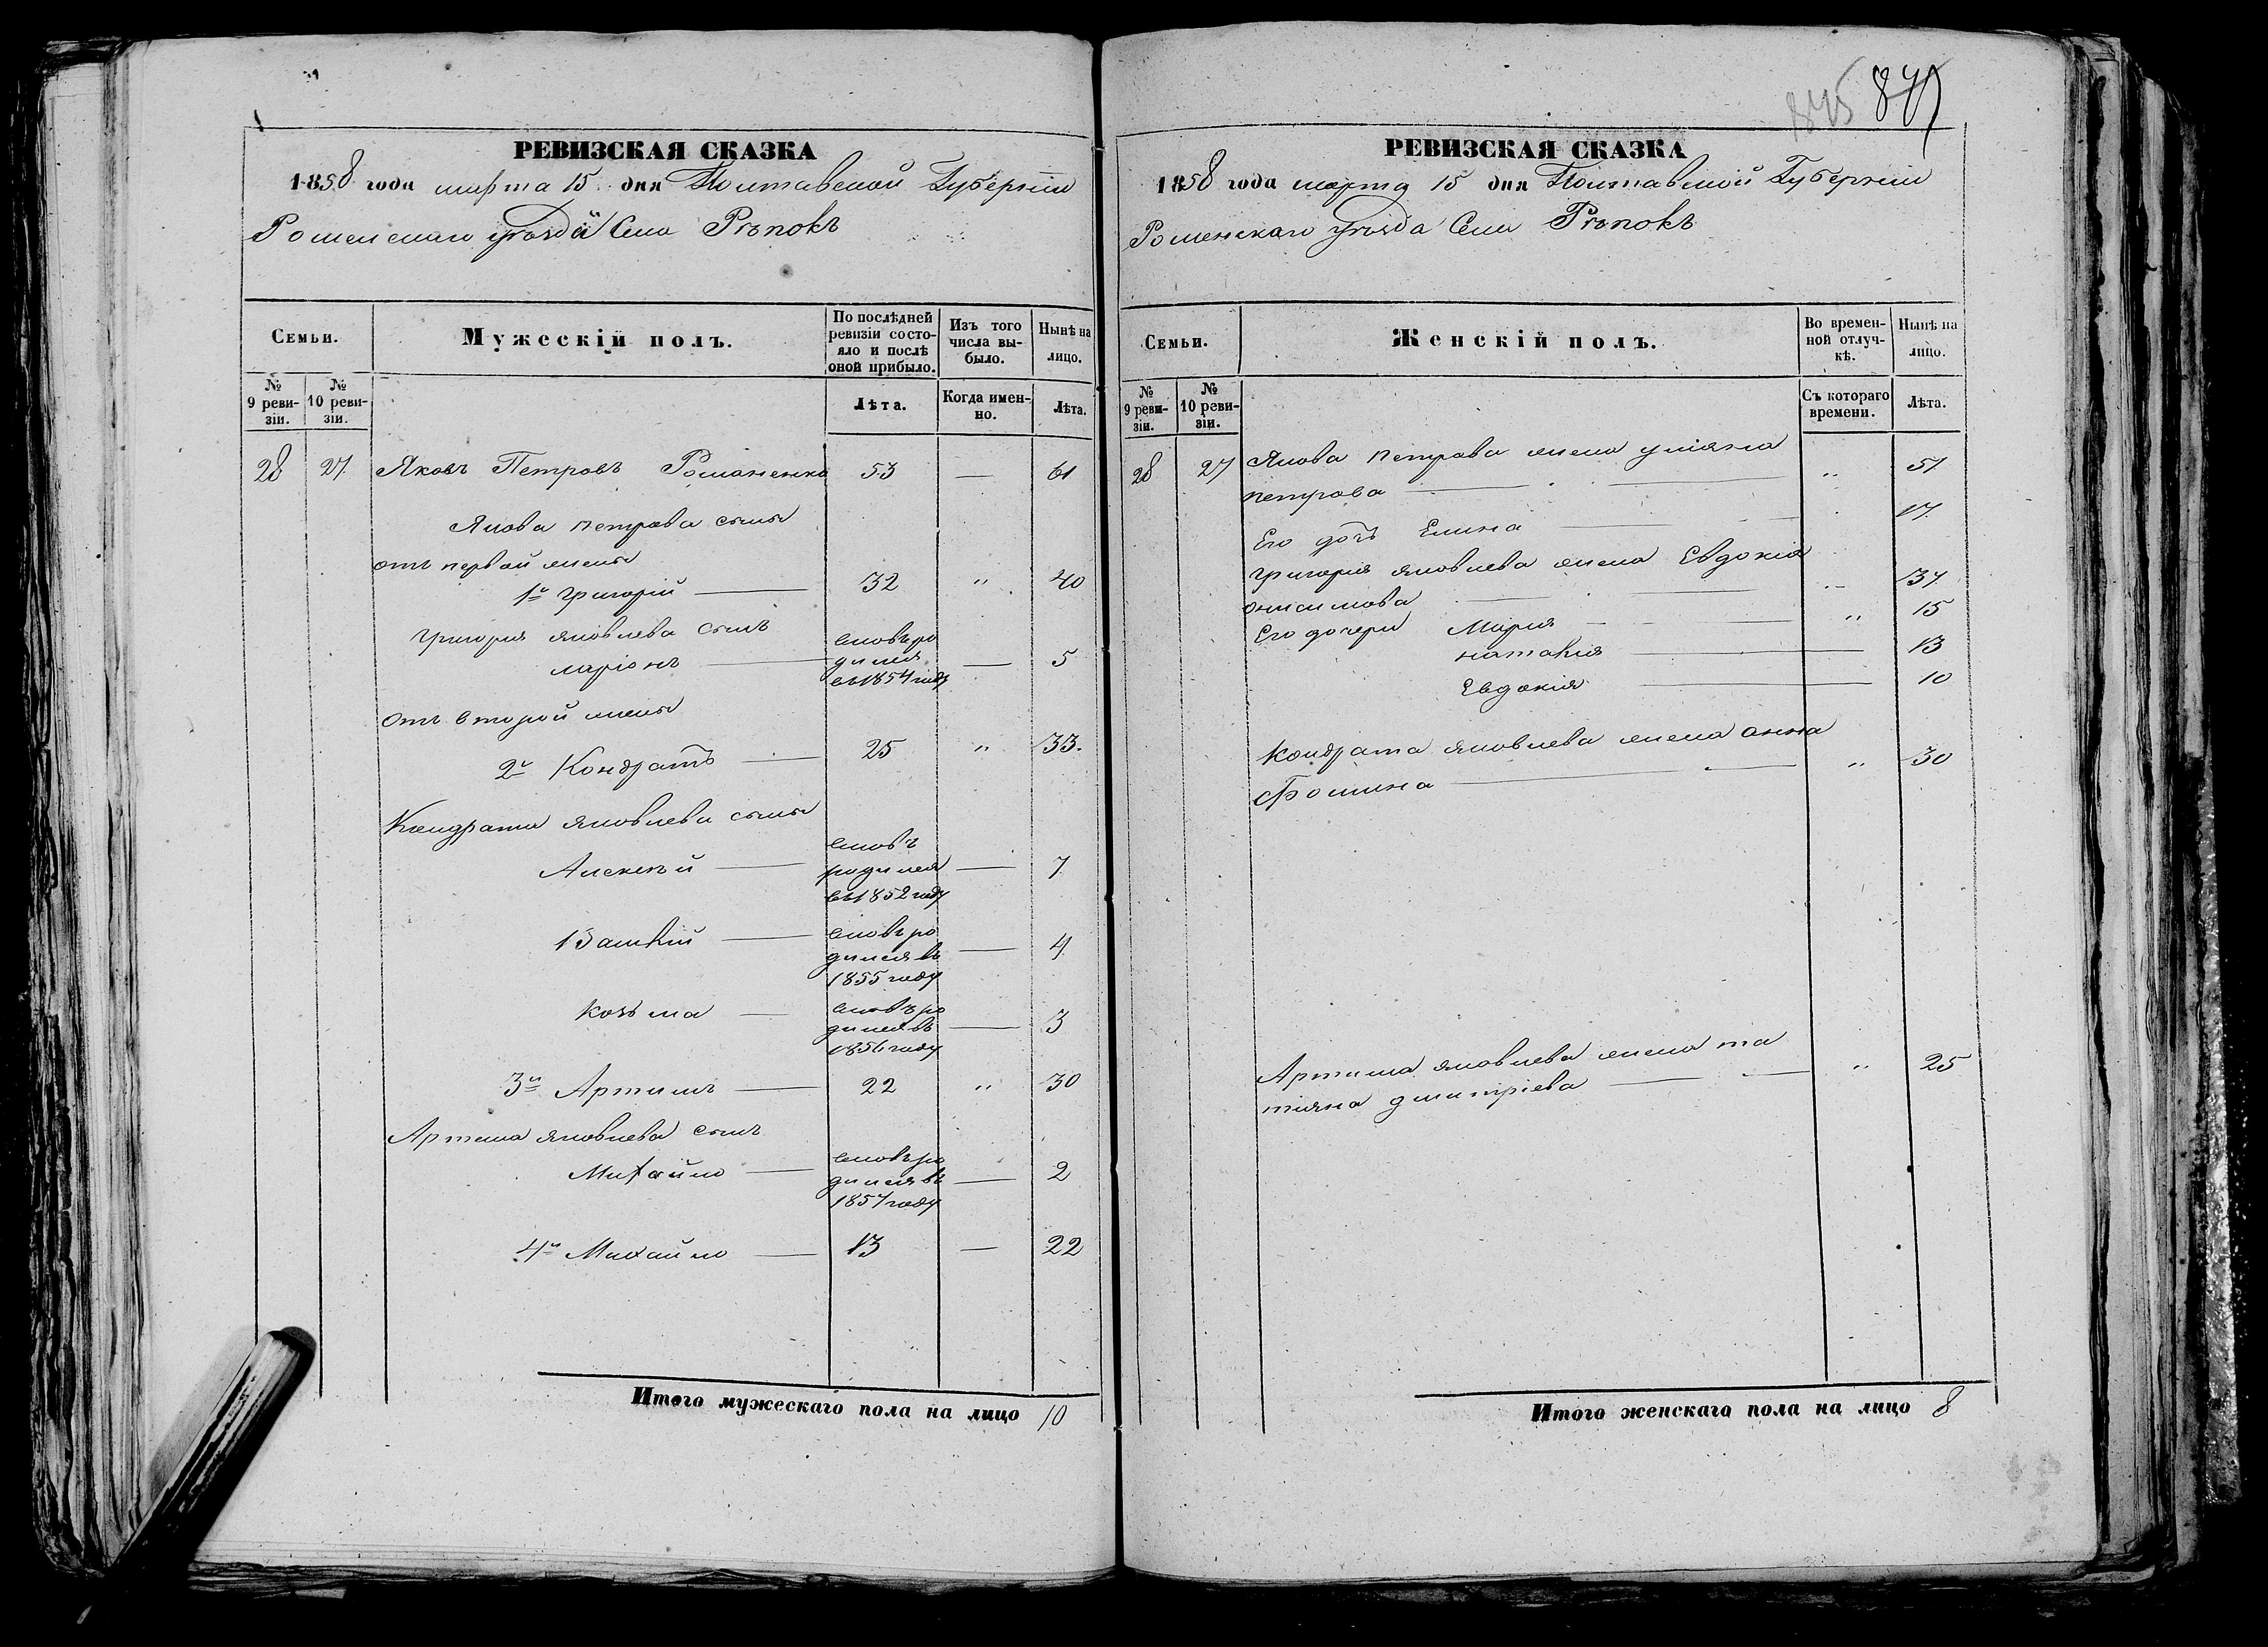 845 847
РЕВИЗСКАЯ СКАЗКА
1858 года марта 15 дня Полтавской Губерніи
Роменскаго уѣзда Села Рѣпокъ
Семьи.
Мужескій полъ.
По послѣдней ревизіи состояло и послѣ оной прибыло.
Изъ того числа выбыло.
Нынѣ на лицо.
№ 9 ревизіи.
№ 10 ревизіи.
Лѣта.
Когда именно.
Лѣта.
28 27 Яковъ Петровъ Романенко 53 — 61
Якова петрова сыны
отъ первой жены
1й григорій — 32 " 40
григорія яковлева сынъ
ларіонъ — вновь родился въ 1854 году — 5
отъ второй жены
2й Кондратъ — 25 " 33.
Кондрата яковлева сыны
Алексѣй — вновь родился въ 1852 году — 7
Василій — вновь родился въ 1855 году — 4
козьма — вновь родился въ 1856 году — 3
3й Артимъ — 22 " 30
Артема яковлева сынъ
Михайло — вновь родился въ 1857 году — 2
4й Михайло — 13 — 22
Итого мужескаго пола на лицо 10
РЕВИЗСКАЯ СКАЗКА
1858 года марта 15 дня Полтавской Губерніи
Роменскаго уѣзда Села Рѣпокъ
Семьи.
Женскій полъ.
Во временной отлучкѣ.
Нынѣ на лицо.
№ 9 ревизіи.
№ 10 ревизіи.
Съ котораго времени.
Лѣта.
28 27 Якова петрова жена уліяна
петрова — " 51
Его дочь Елина — 17
григорія яковлева жена Евдокія
онисимова — 37
Его дочери Марія — " 15
наталія — 13
Евдокія — 10
Кондрата яковлева жена анна
Фомина — " 30
Артима яковлева жена та
тіяна дмитріева — " 25
Итого женскаго пола на лицо 8